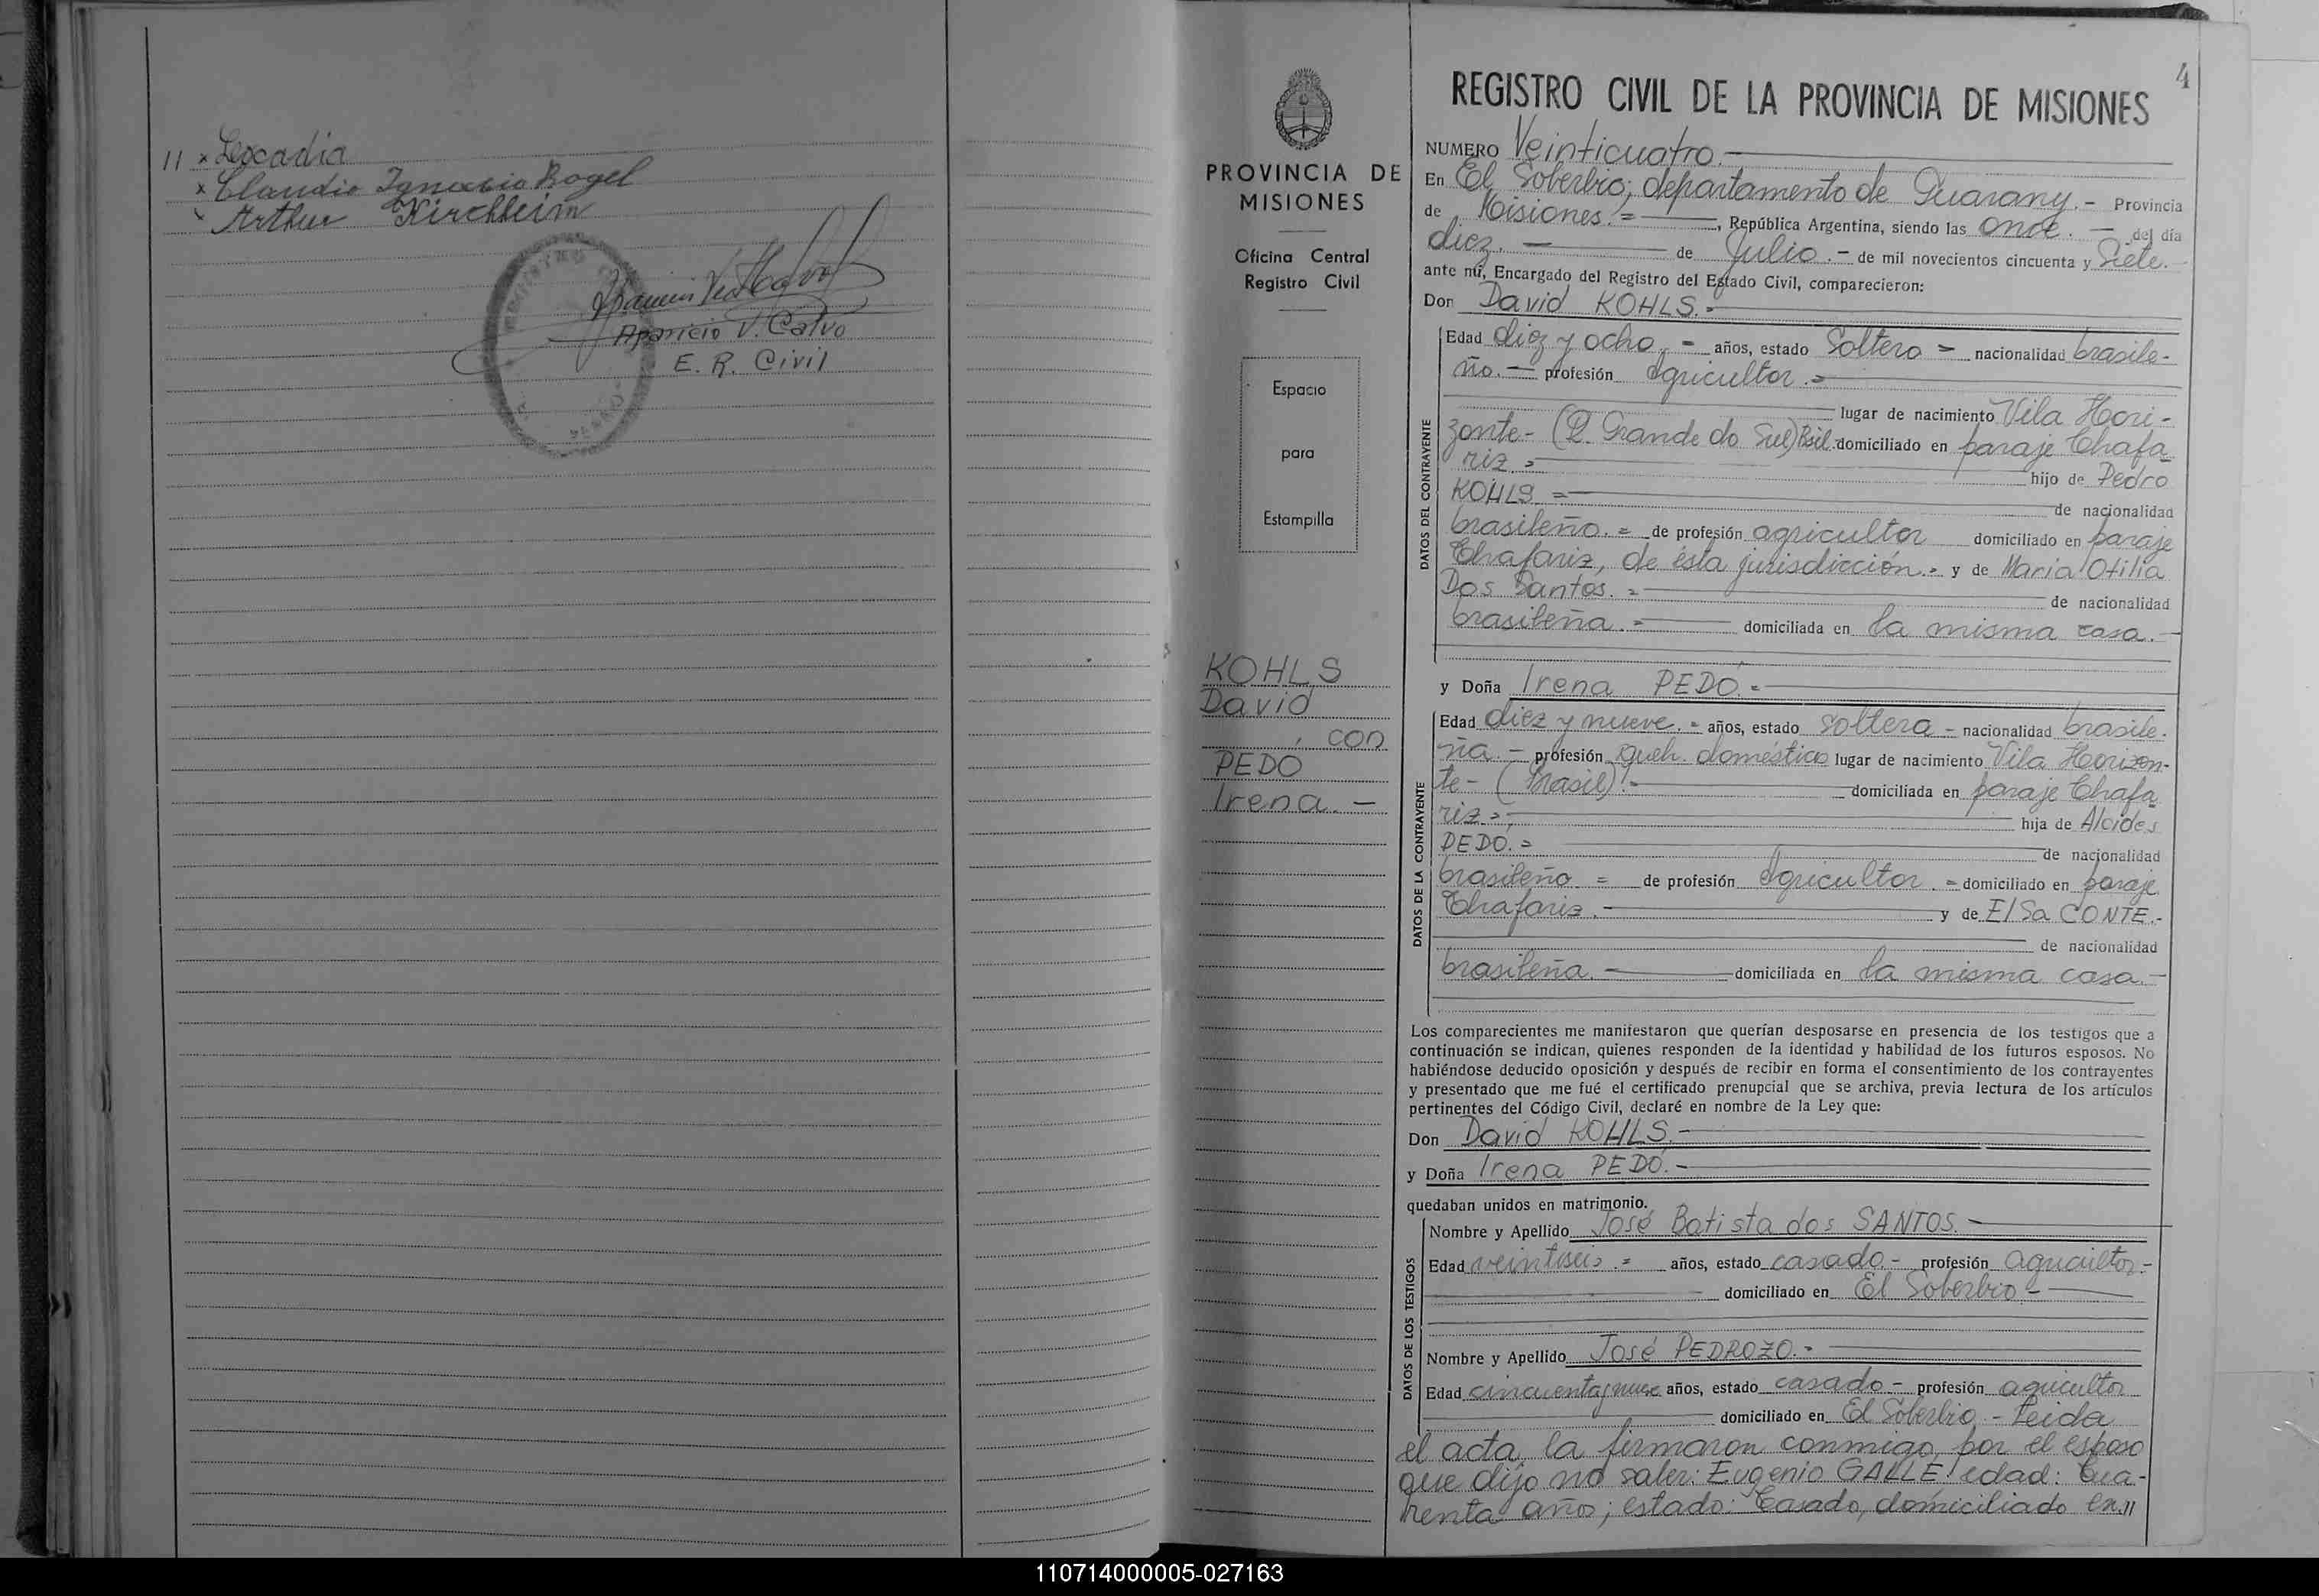 11 x Leocadia
x Claudio Ignacio Rogel
x Arthur Kirchheim
Aparicio V. Calvo
E. R. Civil
4
PROVINCIA DE
MISIONES
Oficina Central
Registro Civil
Espacio
para
Estampilla
KOHLS
David
, con
PEDÓ
Irena.-
REGISTRO CIVIL DE LA PROVINCIA DE MISIONES
NUMERO Veinticuatro.-
En El Soberbio; departamento de Guarany.- Provincia
de Misiones.=, República Argentina, siendo las once.- del día
diez.- de Julio.- de mil novecientos cincuenta y Siete.-
ante mí, Encargado del Registro del Estado Civil, comparecieron:
Don David KOHLS.-
DATOS DEL CONTRAYENTE
Edad diez y ocho.- años, estado Soltero = nacionalidad brasile-
ño.- profesión Agricultor.=
lugar de nacimiento Vila Hori-
zonte- (R. Grande do Sul) Bsil. domiciliado en paraje Chafa
riz.= hijo de Pedro
KOHLS = de nacionalidad
brasileño.= de profesión agricultor domiciliado en paraje
Chafariz, de ésta jurisdicción.= y de Maria Otilia
Dos Santos.= de nacionalidad
brasileña.= domiciliada en la misma casa.-
y Doña Irena PEDÓ.-
DATOS DE LA CONTRAYENTE
Edad diez y nueve.= años, estado soltera - nacionalidad brasile-
ña.- profesión queh. doméstico lugar de nacimiento Vila Horizon-
te- (Brasil).- domiciliada en paraje Chafa
riz=; hija de Alcides
PEDÓ.= de nacionalidad
brasileño = de profesión Agricultor.= domiciliado en paraje
Chafariz.- y de Elsa CONTE.-
de nacionalidad
brasileña.- domiciliada en la misma casa.-
Los comparecientes me manifestaron que querían desposarse en presencia de los testigos que a
continuación se indican, quienes responden de la identidad y habilidad de los futuros esposos. No
habiéndose deducido oposición y después de recibir en forma el consentimiento de los contrayentes
y presentado que me fué el certificado prenupcial que se archiva, previa lectura de los artículos
pertinentes del Código Civil, declaré en nombre de la Ley que:
Don David KOHLS.-
y Doña Irena PEDÓ.-
quedaban unidos en matrimonio.
DATOS DE LOS TESTIGOS
Nombre y Apellido José Batista dos SANTOS.-
Edad veintiseis.= años, estado casado.- profesión agricultor.-
domiciliado en El Soberbio-
Nombre y Apellido José PEDROZO.-
Edad cincuentaynueve años, estado casado- profesión agricultor
domiciliado en El Soberbio.- Leida
el acta, la firmaron conmigo, por el esposo
que dijo no saber: Eugenio GALLE edad: Cua-
renta años; estado: Casado, domiciliado en //
110714000005-027163